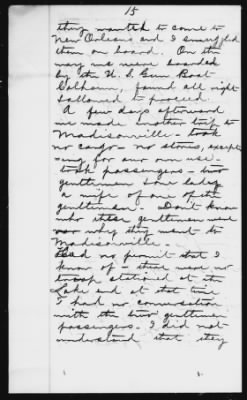 15
they wanted to come to
New Orleans and I smuggled
them on board. On the
way we were boarded
by the U. S. Gun Boat
Calhoun, found all right
& allowed to proceed.
A few days afterward
we made another trip to
Madisonville - took
no cargo - no stores, except
-ing for our own use -
took passengers - two
gentlemen & one lady
a wife of one of the
gentlemen. Don't know
who these gentlemen were
nor why they went to
Madisonville. -
Had no permit that I
know of - there were no
troops stationed at the
Lake end at that time
I had no conversation
with the two gentlemen
passengers. I did not
understand that they